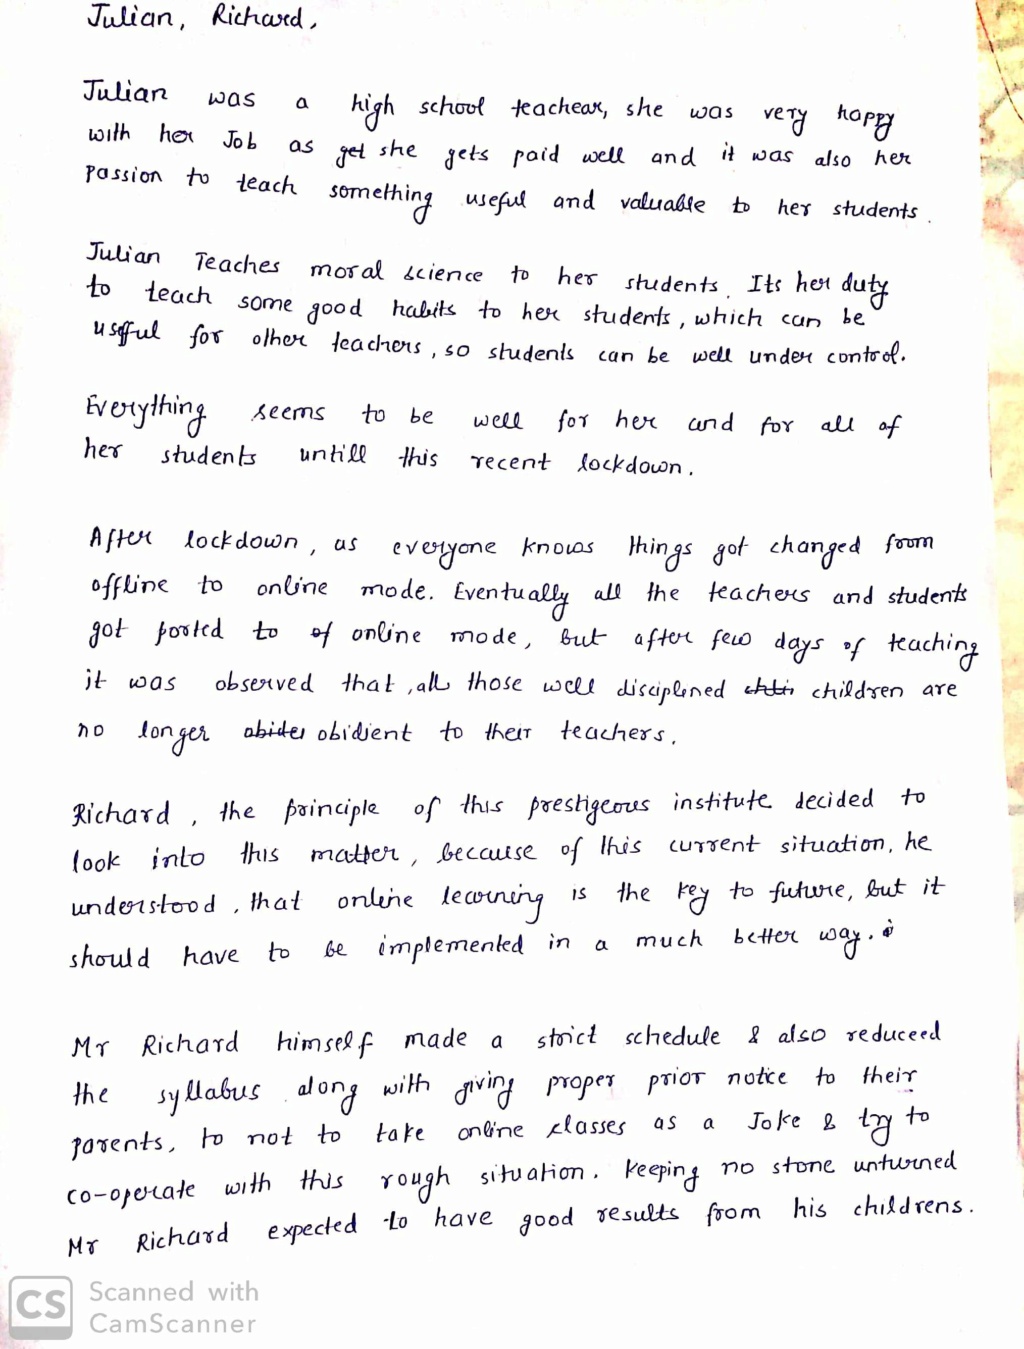 Julian, Richard,
Julian was a high school teachear, she was very happy
with her Job as get she gets paid well and it was also her
Passion to teach something useful and valuable to her students.
Julian Teaches moral science to her students. Its her duty
to teach some good habits to her students, which can be
useful for other teachers, so students can be well under control.
Everything seems to be well for her and for all of
her students untill this recent lockdown.
After lockdown, as everyone knows things got changed from
offline to online mode. Eventually all the teachers and students
got ported to of online mode, but after few days of teaching
it was observed that, all those well disciplened children are
no longer abides obidient to their teachers.
Richard, the principle of this prestigeous institute decided to
look into this matter, because of this current situation, he
understood, that online learning is the key to future, but it
should have to be implemented in a much better way.
Mr Richard himself made a strict schedule & also reduceed
the syllabus along with giving proper prior notice to their
parents, to not to take online classes as a Joke & try to
co-operate with this rough situation. Keeping no stone unturned
Mr Richard expected to have good results from his childrens.
CS Scanned with
CamScanner